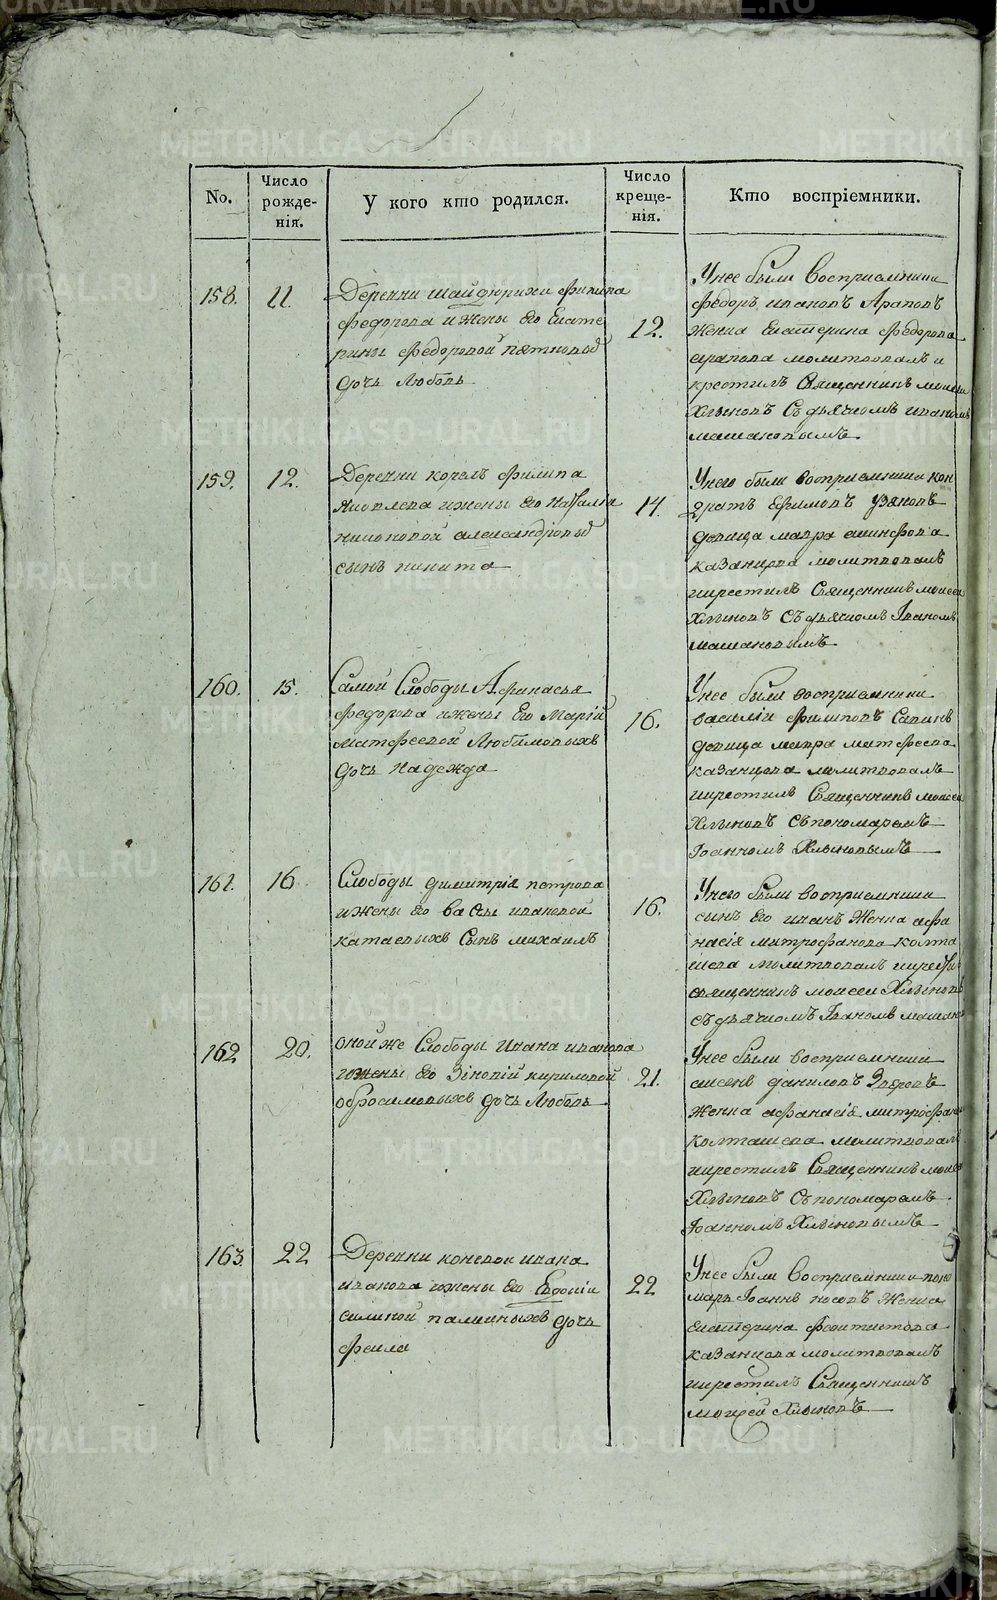 No.
Число рожде-нія.
У кого кто родился.
Число креще-нія.
Кто воспріемники.
158.
11
Деревни шайдурихи Филипа
Федорова и жены его Екате
рины Федоровой пятковых
дочь Любовь
12.
У нее были восприемники
Федоръ ивановъ Араповъ
женка Екатерина Федорова
арапова молитвовалъ и
крестилъ Священникъ моисеи
Хлыновъ Съ дьячкомъ иваномъ
машановымъ
159.
12.
Деревни Филипа
Яковлева и жены его Наталии
александровых
сынъ никита
14.
У него были восприемники кон
дратъ Ефимовъ
девица мавра
казанцова молитвовалъ
и крестилъ Священникъ моисеи
Хлыновъ Съ дьячкомъ Іваномъ
машановымъ
160.
15.
Самой Слободы Афанасья
Федорова и жены Его Маріи
Матфеевой Любимовыхъ
дочь Надежда
16.
У нее были восприемники
василіи Филиповъ Савинъ
девица мавра матфеева
казанцова молитвовалъ
и крестилъ Священникъ моисеи
Хлыновъ съ пономаремъ
Іоанномъ Хлыновымъ
161.
16
Слободы димитрія петрова
и жены его вассы ивановой
катаевыхъ Сынъ михаилъ
16.
У него были восприемники
сынъ его иванъ женка афа
насія митрофанова колта
шева молитвовалъ и крести
священникъ моисеи Хлыновъ
съ дьячкомъ Іваномъ машано
162
20.
Оной же Слободы Ивана иванова
и жены Его Зіновіи кириловой
обросимовыхъ дочь Любовь
21.
У нее были восприемники
даниловъ Зверевъ
женка афанасія митрофано
колташева молитвовалъ
и крестилъ Священникъ моисеи
Хлыновъ Съ пономаремъ
Іоанномъ Хлыновымъ
163.
22
Деревни конево ивана
иванова и жены Его Евдокіи
силиной палкиныхъ дочь
Феила
22
У нее были восприемники поно
марь Іоаннъ женка
Екатерина Феоктистова
казанцова молитвовалъ
и крестилъ Священникъ
моисей Хлыновъ
METRIKI.GASO-URAL.RU